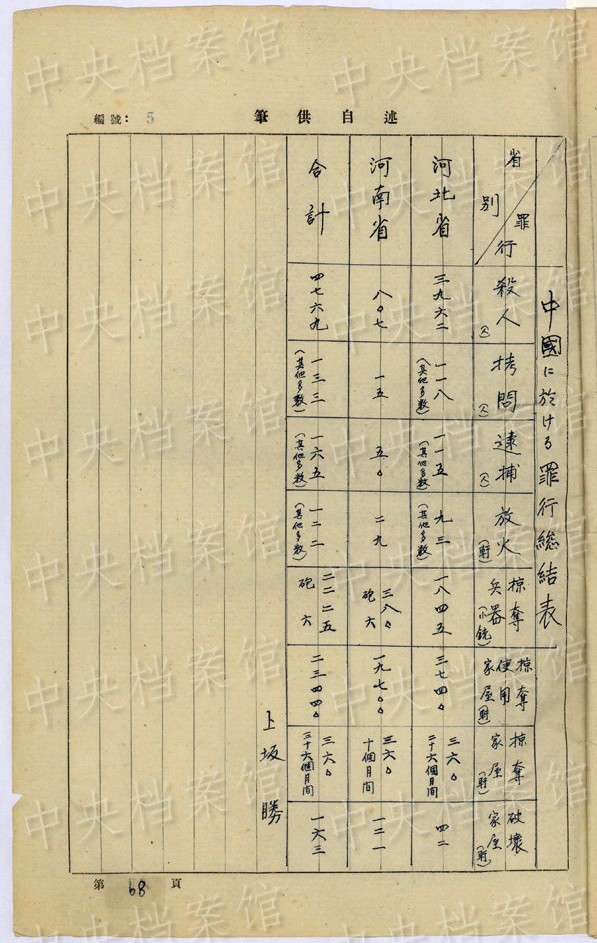 編號: 5
筆供自述
中國に於ける罪行総結表
省別 罪行 殺人(人) 拷問(人) 逮捕(人) 放火(軒) 掠奪兵器(小銃) 掠奪使用家屋(軒) 掠奪家屋(軒) 破壞家屋(軒)
河北省 三九六二 一一八(其他多数) 一一五(其他多数) 九三(其他多数) 一八四五 三七四〇 三六〇二十六個月間 四二
河南省 八〇七 一五 五〇 二九 三八〇砲六 一九七〇〇 三六〇十個月間 一二一
合計 四七六九 一三三(其他多数) 一六五(其他多数) 一二二(其他多数) 二二二五砲六 二三四四〇 三六〇三十六個月間 一六三
上坂勝
第 68 頁
中央档案馆